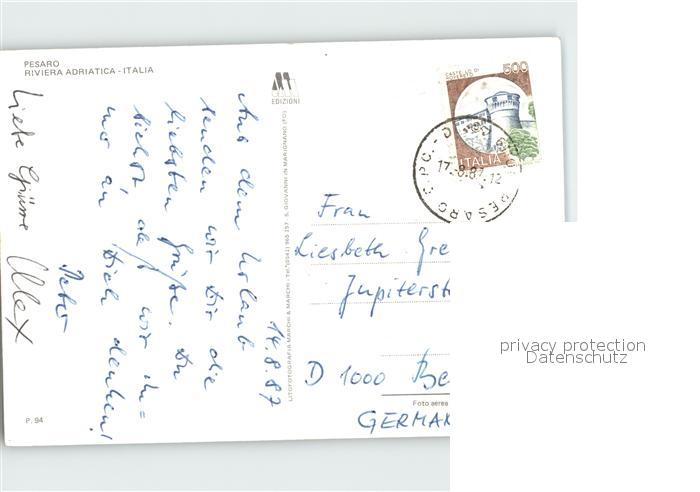 PESARO
RIVIERA ADRIATICA - ITALIA
EDIZIONI
14.8.87
Aus dem Urlaub
senden wir Dir die
liebsten Grüße. Du
siehst daß wir im=
mer an Dich denken!
Peter
Liebe Grüsse Alex
LITOFOTOGRAFIA MARCHI & MARCHI - Tel. (0541) 955 257 - S. GIOVANNI IN MARIGNANO (FO)
CASTELLO DI
ROVERETO
500
ITALIA
17.8.87
PESARO
Frau
Liesbeth Gre
Jupiterst
D 1000 Be
Foto aerea
GERMAN
P. 94
privacy protection
Datenschutz